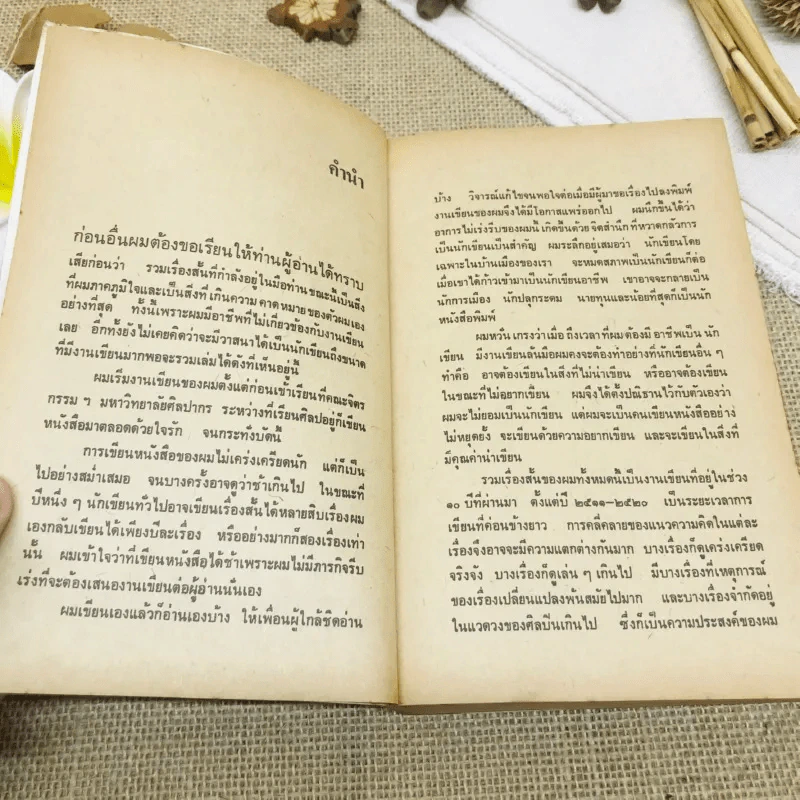 คำนำ
ก่อนอื่นผมต้องขอเรียนให้ท่านผู้อ่านได้ทราบ
เสียก่อนว่า รวมเรื่องสั้นที่กำลังอยู่ในมือท่านขณะนี้เป็นสิ่ง
ที่ผมภาคภูมิใจและเป็นสิ่งที่เกินความคาดหมายของตัวผมเอง
อย่างที่สุด ทั้งนี้เพราะผมมีอาชีพที่ไม่เกี่ยวข้องกับงานเขียน
เลย อีกทั้งยังไม่เคยคิดว่าจะมีวาสนาได้เป็นนักเขียนถึงขนาด
ที่มีงานเขียนมากพอจะรวมเล่มได้ดังที่เห็นอยู่นี้
ผมเริ่มงานเขียนของผมตั้งแต่ก่อนเข้าเรียนที่คณะจิตร
กรรมฯ มหาวิทยาลัยศิลปากร ระหว่างที่เรียนศิลปอยู่ก็เขียน
หนังสือมาตลอดด้วยใจรัก จนกระทั่งบัดนี้
การเขียนหนังสือของผมไม่เคร่งเครียดนัก แต่ก็เป็น
ไปอย่างสม่ำเสมอ จนบางครั้งอาจดูว่าช้าเกินไป ในขณะที่
ปีหนึ่ง ๆ นักเขียนทั่วไปอาจเขียนเรื่องสั้นได้หลายสิบเรื่องผม
เองกลับเขียนได้เพียงปีละเรื่อง หรืออย่างมากก็สองเรื่องเท่า
นั้น ผมเข้าใจว่าที่เขียนหนังสือได้ช้าเพราะผมไม่มีภารกิจรีบ
เร่งที่จะต้องเสนองานเขียนต่อผู้อ่านนั่นเอง
ผมเขียนเองแล้วก็อ่านเองบ้าง ให้เพื่อนผู้ใกล้ชิดอ่าน
บ้าง วิจารณ์แก้ไขจนพอใจต่อเมื่อมีผู้มาขอเรื่องไปลงพิมพ์
งานเขียนของผมจึงได้มีโอกาสแพร่ออกไป ผมนึกขึ้นได้ว่า
อาการไม่เร่งรีบของผมนี้ เกิดขึ้นด้วย จิตสำนึก ที่หวาดกลัวการ
เป็นนักเขียนเป็นสำคัญ ผมระลึกอยู่เสมอว่า นักเขียนโดย
เฉพาะในบ้านเมืองของเรา จะหมดสภาพเป็นนักเขียนก็ต่อ
เมื่อเขาได้ก้าวเข้ามาเป็นนักเขียนอาชีพ เขาอาจจะกลายเป็น
นักการเมือง นักปลุกระดม นายทุนและน้อยที่สุดก็เป็นนัก
หนังสือพิมพ์
ผมหวั่นเกรงว่าเมื่อ ถึงเวลาที่ผมต้องมีอาชีพเป็นนัก
เขียน มีงานเขียนล้นมือผมคงจะต้องทำอย่างที่นักเขียนอื่น ๆ
ทำคือ อาจต้องเขียนในสิ่งที่ไม่น่าเขียน หรืออาจต้องเขียน
ในขณะที่ไม่อยากเขียน ผมจึงได้ตั้งปณิธานไว้กับตัวเองว่า
ผมจะไม่ยอมเป็นนักเขียน แต่ผมจะเป็นคนเขียนหนังสืออย่าง
ไม่หยุดยั้ง จะเขียนด้วยความอยากเขียน และจะเขียนในสิ่งที่
มีคุณค่าน่าเขียน
รวมเรื่องสั้นของผมทั้งหมดนี้เป็นงานเขียนที่อยู่ในช่วง
๑๐ ปีที่ผ่านมา ตั้งแต่ปี ๒๕๑๑–๒๕๒๐ เป็นระยะเวลาการ
เขียนที่ค่อนข้างยาว การคลี่คลายของแนวความคิดในแต่ละ
เรื่องจึงอาจจะมีความแตกต่างกันมาก บางเรื่องก็ดูเคร่งเครียด
จริงจัง บางเรื่องก็ดูเล่น ๆ เกินไป มีบางเรื่องที่เหตุการณ์
ของเรื่องเปลี่ยนแปลงพ้นสมัยไปมาก และบางเรื่องจำกัดอยู่
ในแวดวงของศิลปินเกินไป ซึ่งก็เป็นความประสงค์ของผม